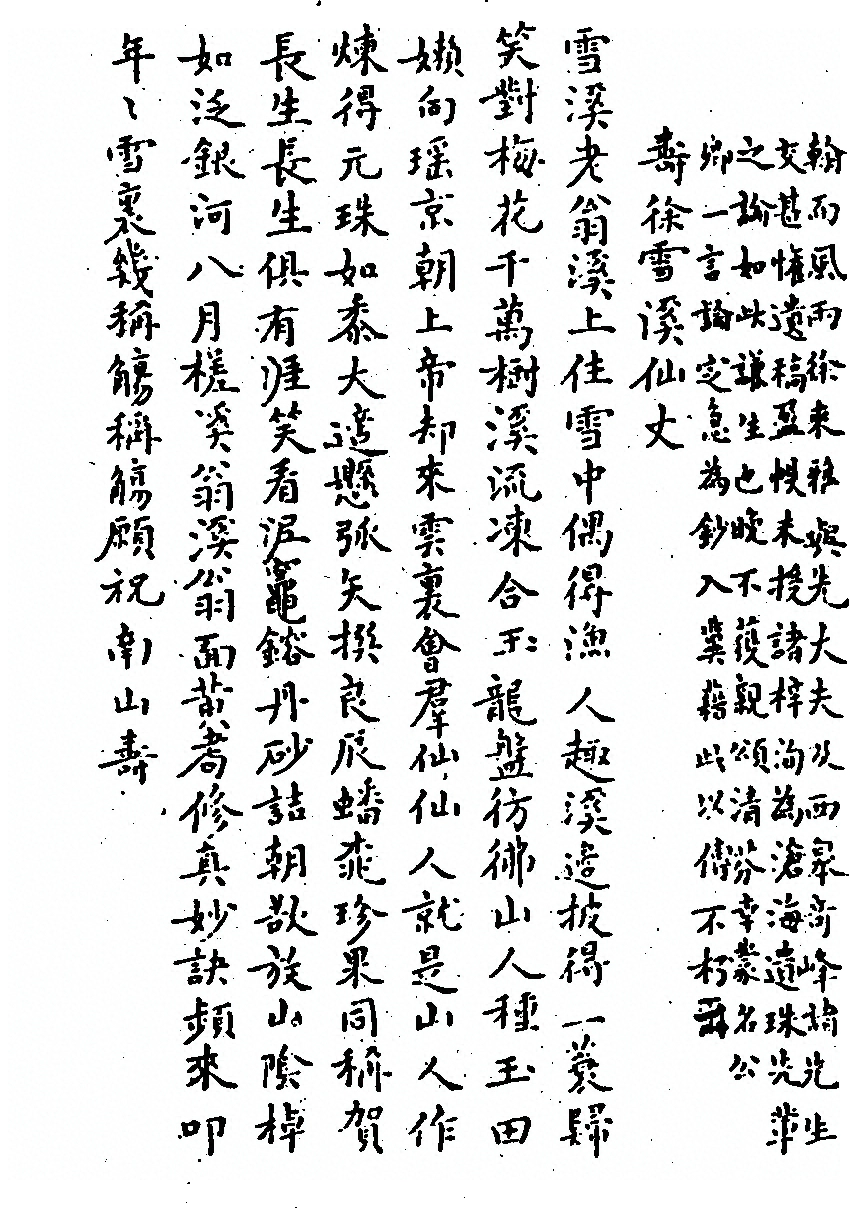 翰而風雨徐來雅與先大夫及西皋奇峰諸先生
交甚懽遺稿盈幔未授諸梓洵為滄海遺珠先輩
之論如此謙生也晚不獲親頌清芬幸蒙名公
卿一言論定急為鈔入冀藉此以傳不朽爾
壽徐雪溪仙丈
雪溪老翁溪上住雪中偶得漁人趣溪邊披得一蓑歸
笑對梅花千萬樹溪流凍合玉龍盤彷彿山人種玉田
嬾向瑤京朝上帝却來雲裏會群仙仙人就是山人作
煉得元珠如黍大適懸弧矢撰良辰蟠桃珍果同稱賀
長生長生俱有涯笑看泥竈鎔丹砂詰朝欲放山陰棹
如泛銀河八月槎溪翁溪翁面黃耈修真妙訣頻來叩
年〻雪裏幾稱觴稱觴願祝南山壽